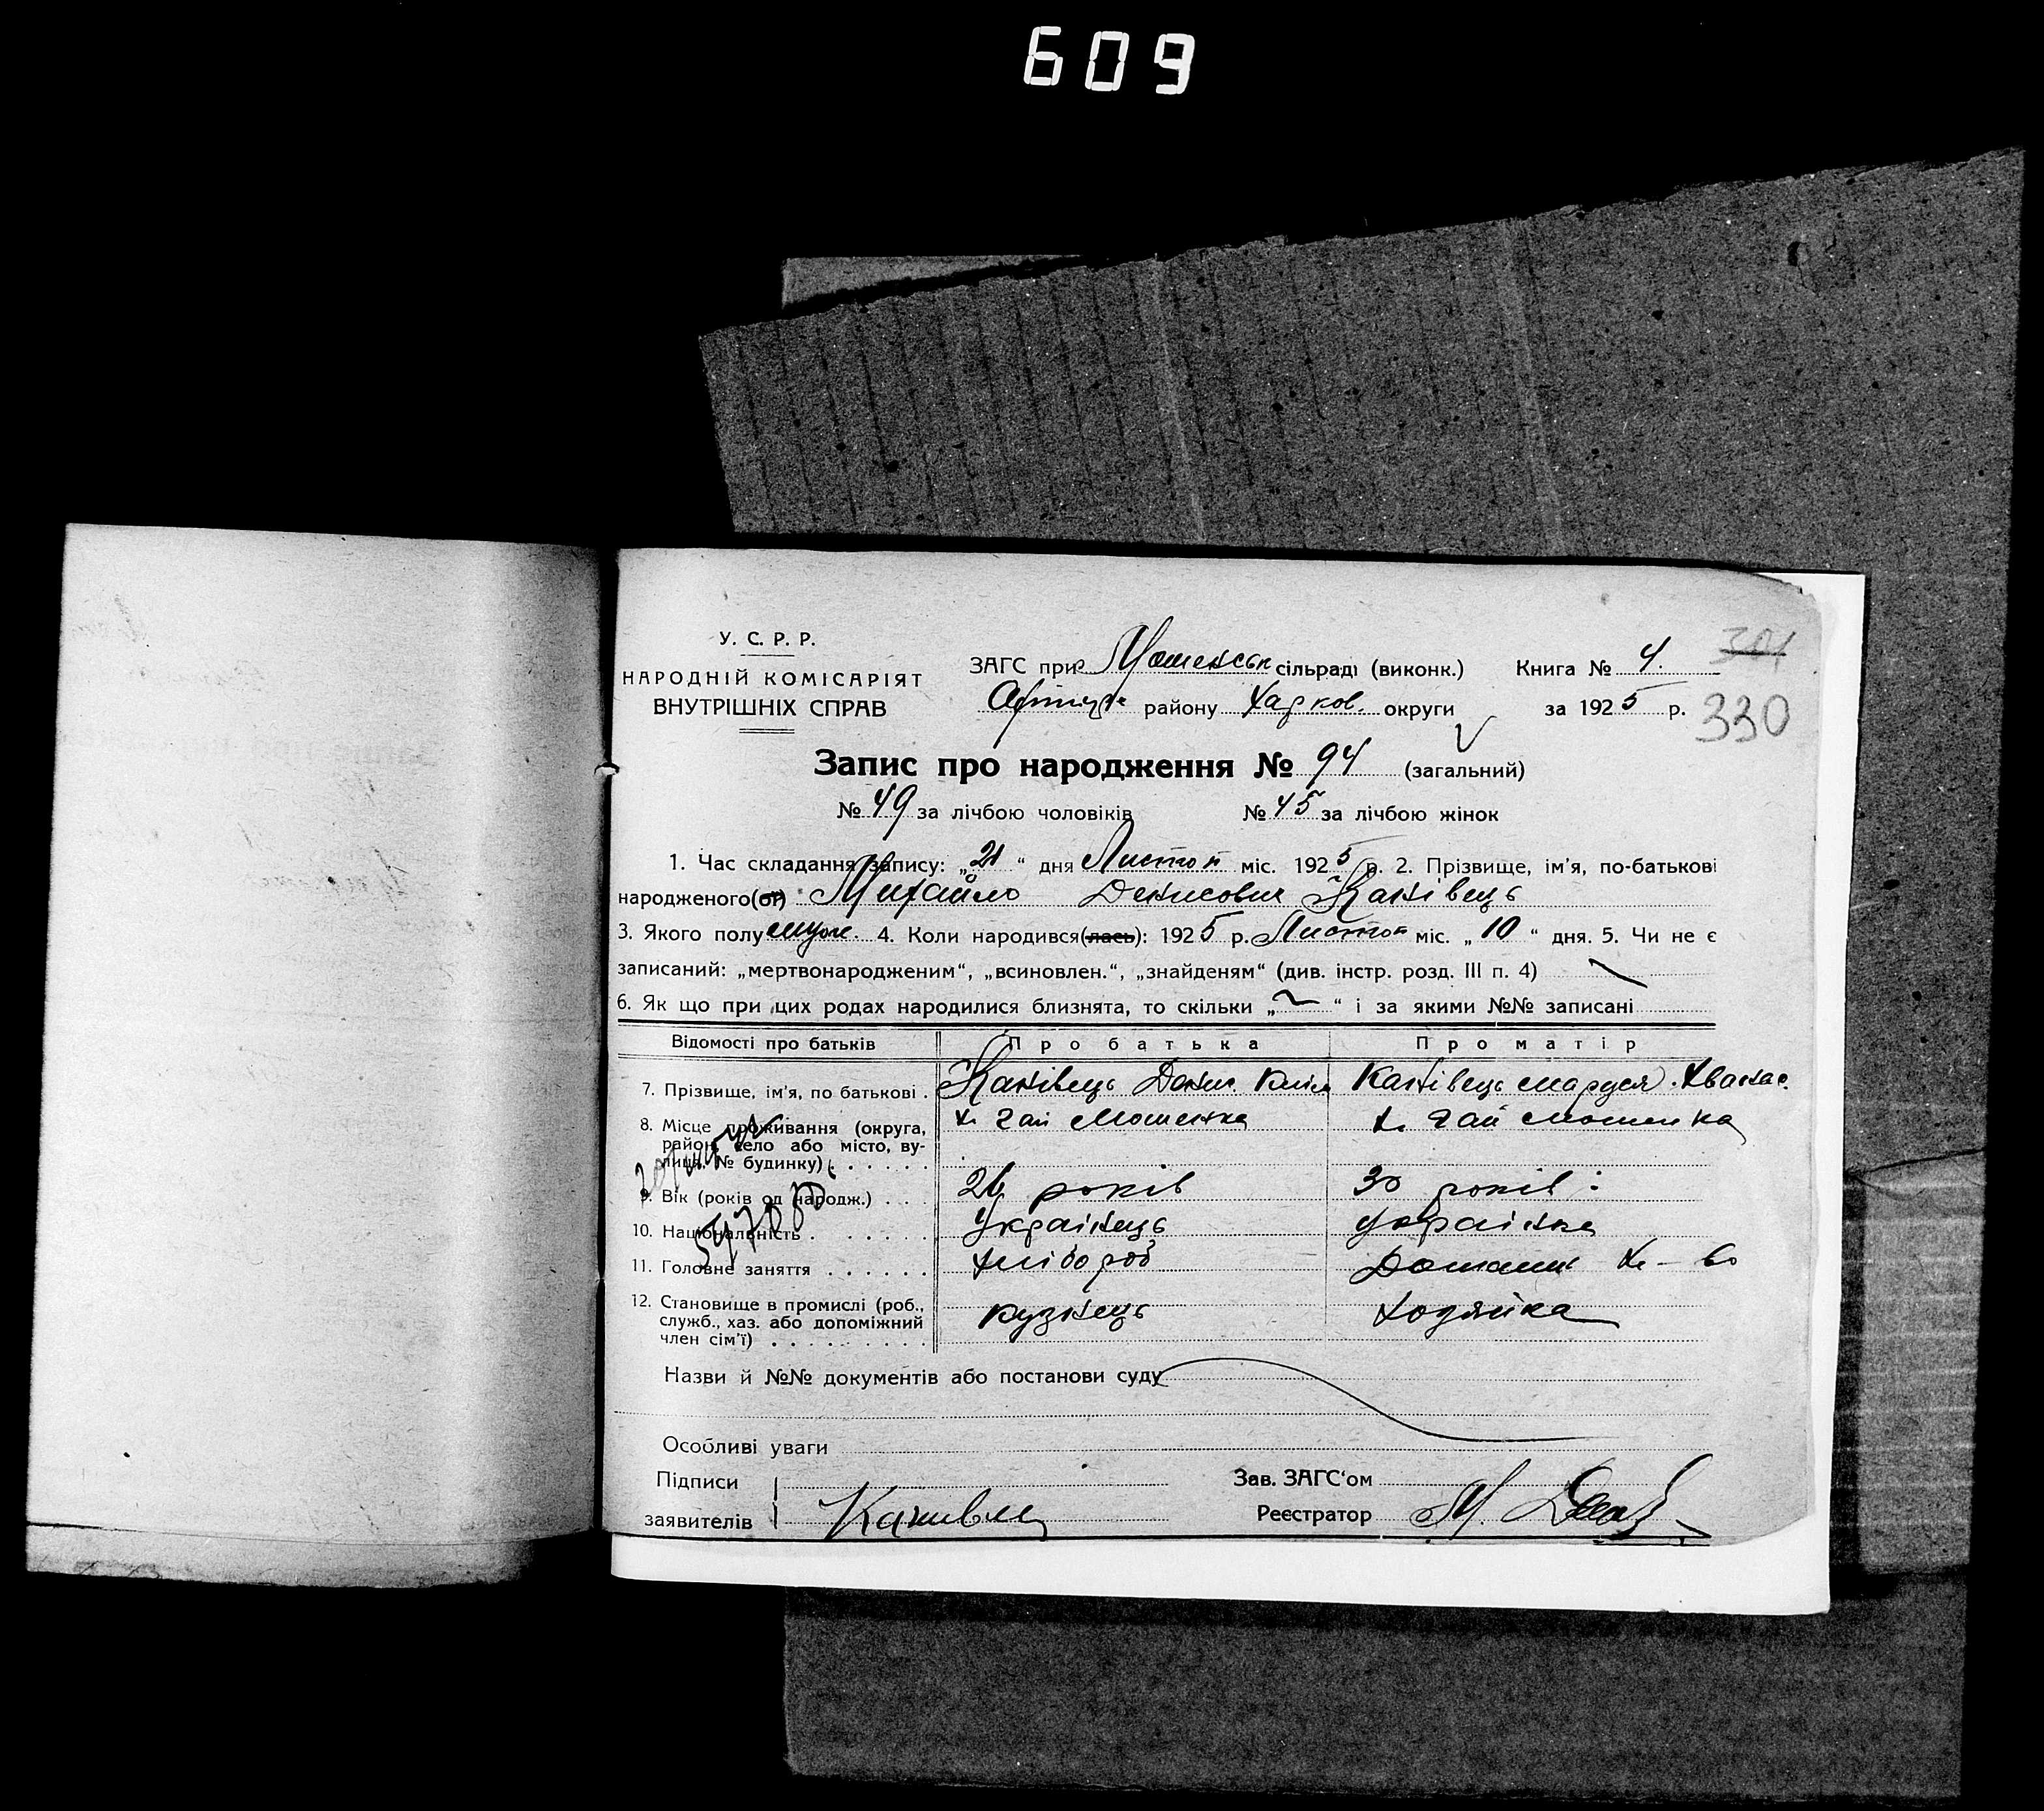 609
У. С. Р. Р.
НАРОДНІЙ КОМІСАРІЯТ
ВНУТРІШНІХ СПРАВ
ЗАГС при сільраді (виконк.) Книга № 4. 301
району Харков. округи за 1925 р. 330
Запис про народження № 94 (загальний)
№ 49 за лічбою чоловіків № 45 за лічбою жінок
1. Час складання запису: „21“ дня Листоп міс. 1925 р. 2. Прізвище, ім'я, по-батькові
народженого(ої) Михайло Денисович Канівець
3. Якого полу муж. 4. Коли народився(лась): 1925 р. Листоп міс. „10“ дня. 5. Чи не є
записаний: „мертвонародженим“, „всиновлен.“, „знайденям“ (див. інстр. розд. III п. 4)
6. Як що при цих родах народилися близнята, то скільки „ “ і за якими №№ записані
Відомості про батьків Про батька Про матір
7. Прізвище, ім'я, по батькові . Канівець Денис Клим Канівець Маруся Хванас.
8. Місце проживання (округа, х. Гай Мошенка х. Гай Мошенка
район, село або місто, ву-
лиця, № будинку) . . . . . .
9. Вік (років од народж.) . . . 26 років 30 років
10. Національність . . . . . . Українець Українка
11. Головне заняття . . . . . . Хлібороб Домашн х-во
12. Становище в промислі (роб., кузнець хозяйка
служб., хаз. або допоміжний
член сім'ї) . . . . . . . . .
Назви й №№ документів або постанови суду
Особливі уваги
Підписи Зав. ЗАГС'ом
заявителів Реєстратор М.